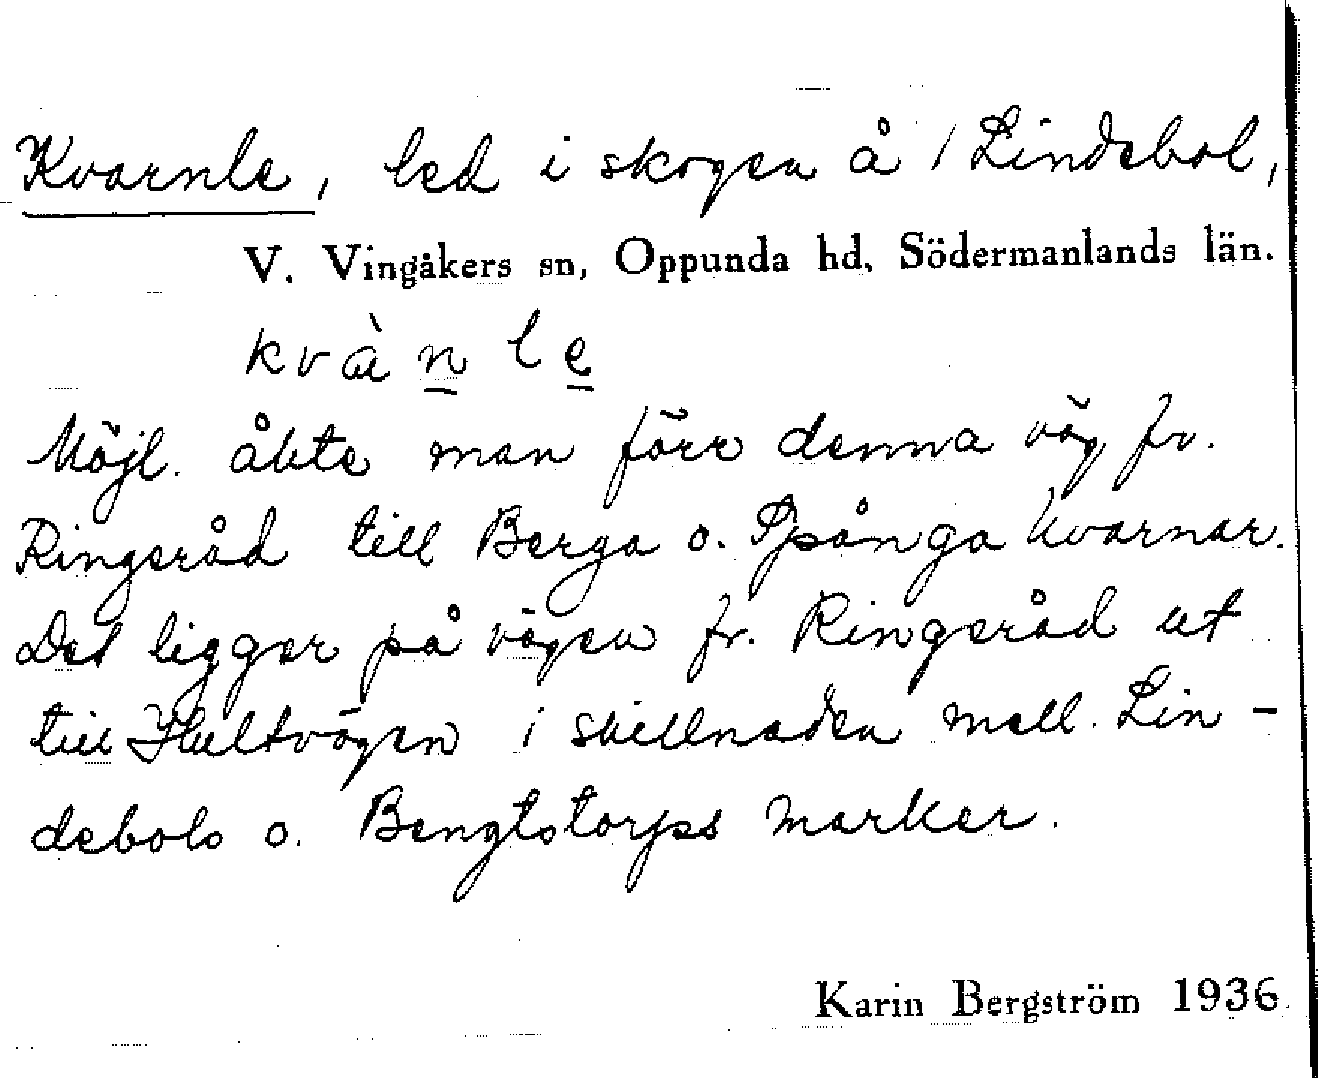 Kvarnle, led i skogen å 1 Lindebol,
V. Vingåkers sn, Oppunda hd, Södermanlands län.
kvà n l e
Möjl. åkte man förr denna väg fr.
Ringeråd till Berga o. Spånga kvarnar.
Det ligger på vägen fr. Ringeråd ut
till Hultvägen i skillnaden mell. Lin-
debols o. Bengtstorps marker.
Karin Bergström 1936